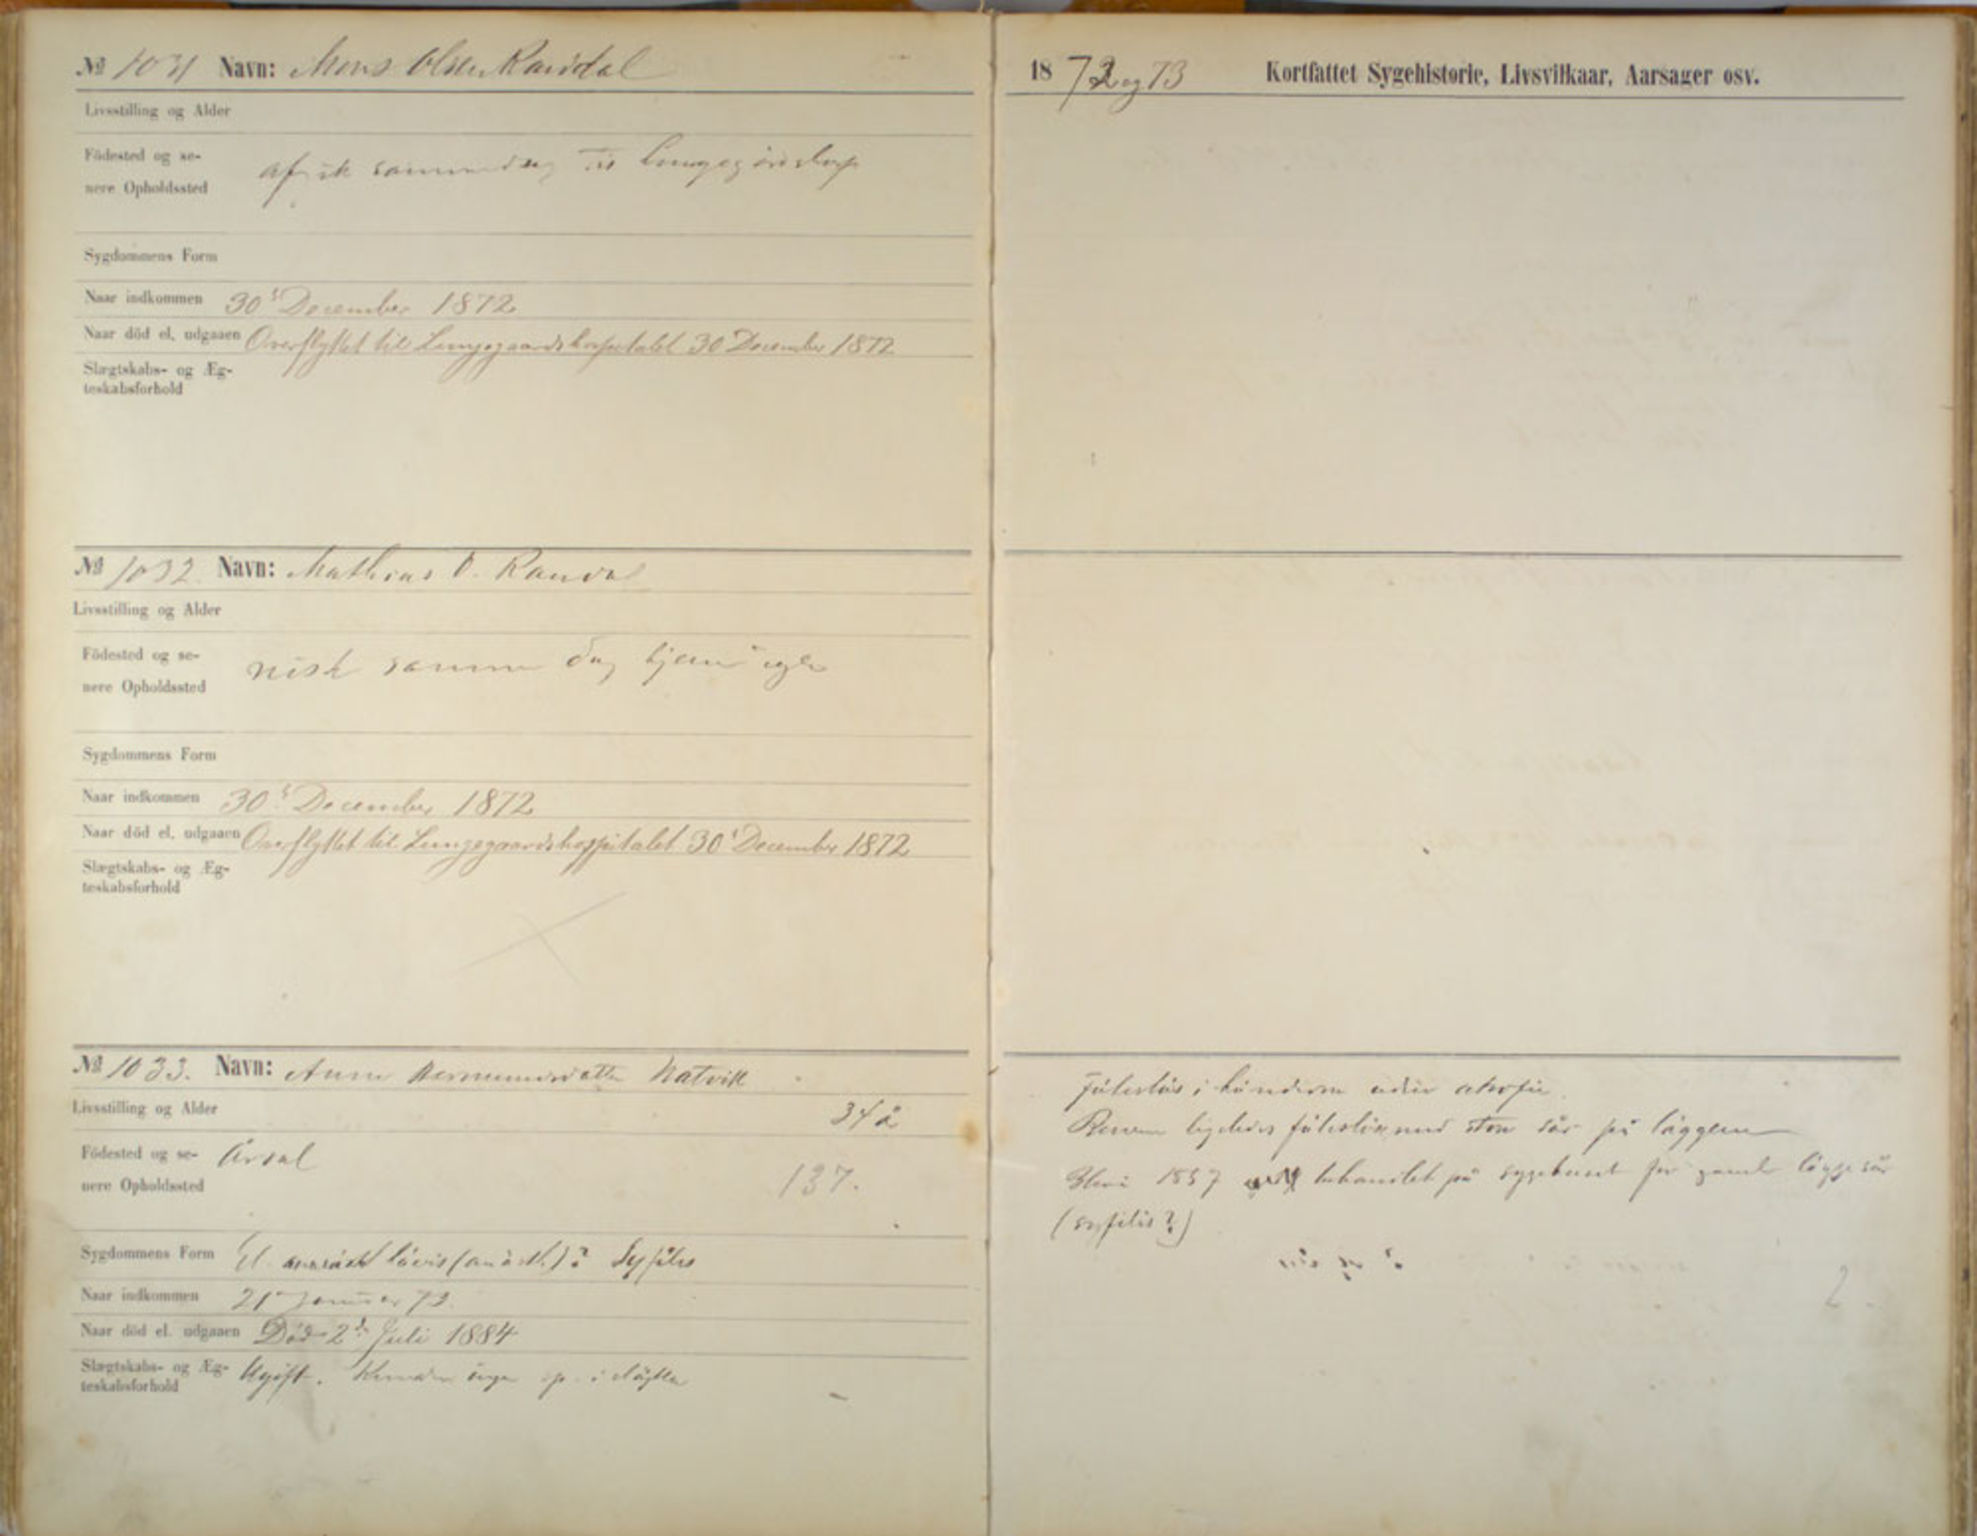 № 1031 Navn: Mons Olsen Randal
Livsstilling og Alder
Födested og se-
nere Opholdssted
samme dag til
Sygdommens Form
Naar indkommen 30' December 1872
Naar död el. udgaaen Overflyttet til Lungegaardshospitalet 30 December 1872
Slægtskabs- og Æg-
teskabsforhold
№ 1032. Navn: Mathias O. Randal
Livsstilling og Alder
Födested og se-
nere Opholdssted
reist samme dag hjem igen
Sygdommens Form
Naar indkommen 30' December 1872
Naar död el. udgaaen Overflyttet til Lungegaardshospitalet 30' December 1872
Slægtskabs- og Æg-
teskabsforhold
№ 1033. Navn: Anna Natvik
Livsstilling og Alder 34 å
Födested og se- Årdal
nere Opholdssted 137.
Sygdommens Form Syfilis
Naar indkommen 21 Januar 73.
Naar död el. udgaaen Död 2' Juli 1884
Slægtskabs- og Æg- Ugift. Kender ingen sp. i slägten
teskabsforhold
1872 og 73 Kortfattet Sygehistorie, Livsvilkaar, Aarsager osv.
Fölelslös i händerne uden atrofie.
Benene ligeledes fölelslöse med store sår på läggene
1857 behandlet på sygehuset for gamle läggesår
(syfilis?)
2.